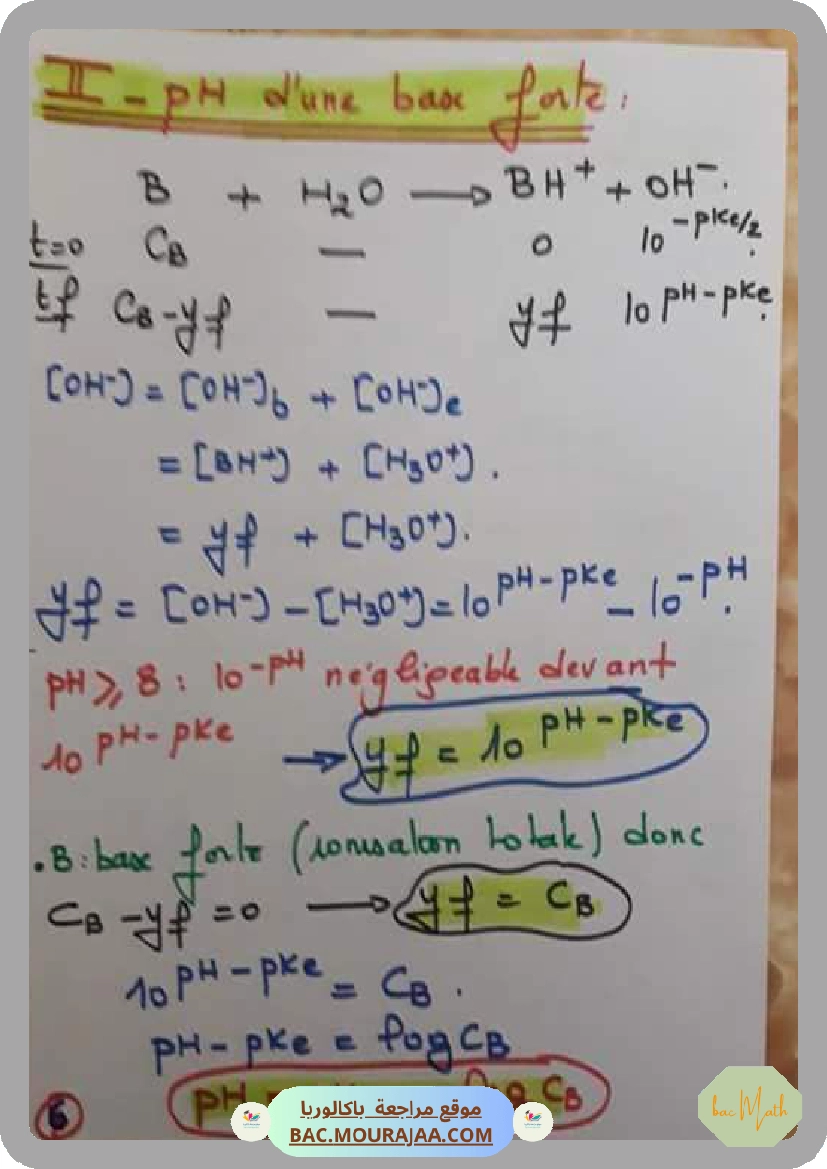 II - pH d'une base forte :
B + H₂O → BH⁺ + OH⁻.
t=0 C_B — 0 10^-pKe/2.
tf C_B-yf — yf 10^pH-pKe.
[OH⁻] = [OH⁻]b + [OH⁻]e
= [BH⁺] + [H₃O⁺].
= yf + [H₃O⁺].
yf = [OH⁻] - [H₃O⁺] = 10^pH-pKe - 10^-pH.
pH ⩾ 8 : 10^-pH négligeable devant
10^pH-pKe → yf = 10^pH-pKe
.B: base forte (ionisation totale) donc
C_B - yf = 0 → yf = C_B
10^pH-pKe = C_B.
pH - pKe = log C_B
pH = log C_B
6
موقع مراجعة باكالوريا
BAC.MOURAJAA.COM
bac Math